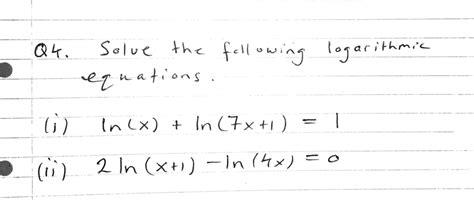 Q4. Solve the following logarithmic
equations.
(i) ln(x) + ln(7x+1) = 1
(ii) 2 ln(x+1) - ln(4x) = 0